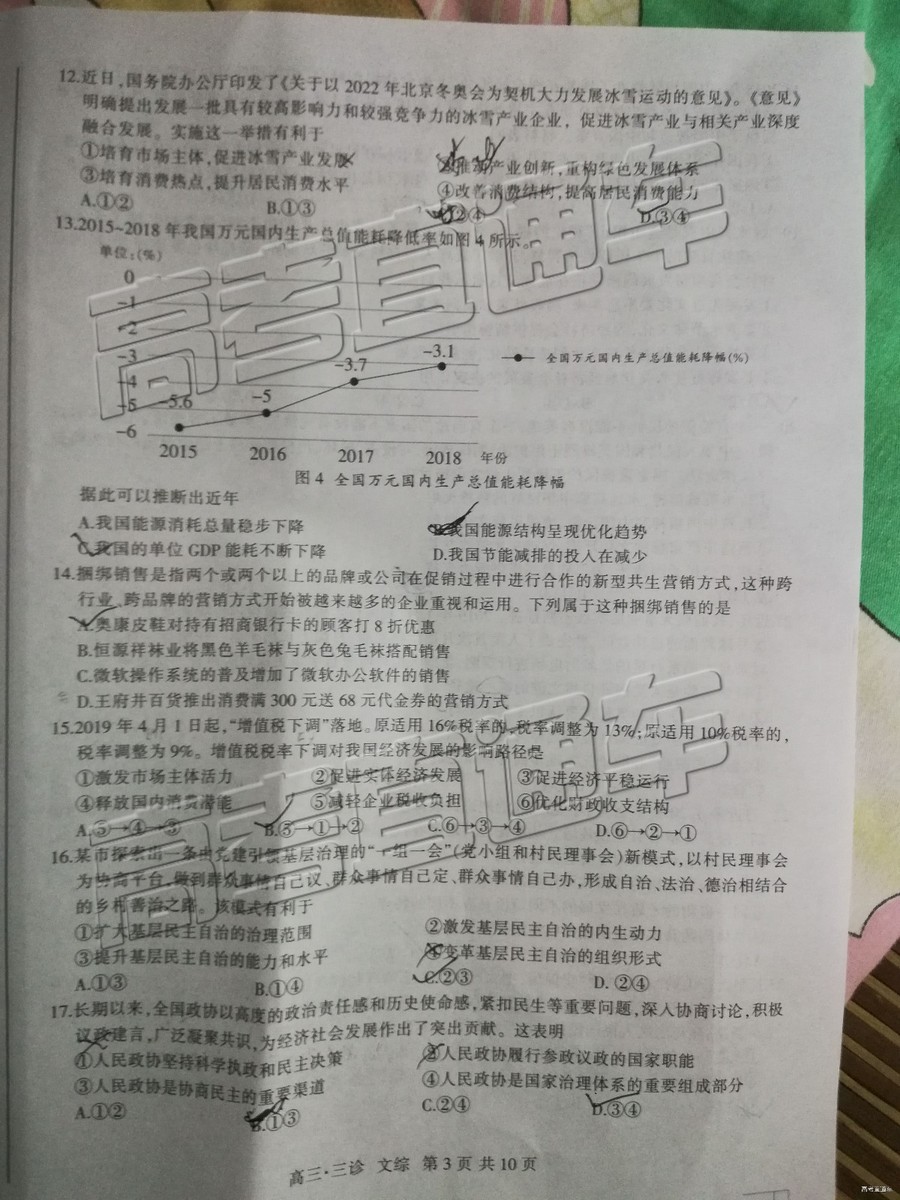 12.近日,国务院办公厅印发了《关于以 2022 年北京冬奥会为契机大力发展冰雪运动的意见》。《意见》
明确提出发展一批具有较高影响力和较强竞争力的冰雪产业企业，促进冰雪产业与相关产业深度
融合发展。实施这一举措有利于
①培育市场主体,促进冰雪产业发展 ②推动产业创新,重构绿色发展体系
③培育消费热点,提升居民消费水平 ④改善消费结构,提高居民消费能力
A.①② B.①③ C.②④ D.③④
13.2015~2018 年我国万元国内生产总值能耗降低率如图 4 所示。
单位:(%)
0
-1
-2
-3 -3.1
-3.7 全国万元国内生产总值能耗降幅(%)
-4
-5 -5.6 -5
-6
2015 2016 2017 2018 年份
图 4 全国万元国内生产总值能耗降幅
据此可以推断出近年
A.我国能源消耗总量稳步下降 B.我国能源结构呈现优化趋势
C.我国的单位 GDP 能耗不断下降 D.我国节能减排的投入在减少
14.捆绑销售是指两个或两个以上的品牌或公司在促销过程中进行合作的新型共生营销方式，这种跨
行业、跨品牌的营销方式开始被越来越多的企业重视和运用。下列属于这种捆绑销售的是
A.奥康皮鞋对持有招商银行卡的顾客打 8 折优惠
B.恒源祥袜业将黑色羊毛袜与灰色兔毛袜搭配销售
C.微软操作系统的普及增加了微软办公软件的销售
D.王府井百货推出消费满 300 元送 68 元代金券的营销方式
15.2019 年 4 月 1 日起,“增值税下调”落地。原适用 16%税率的,税率调整为 13%;原适用 10%税率的,
税率调整为 9%。增值税税率下调对我国经济发展的影响路径是
①激发市场主体活力 ②促进实体经济发展 ③促进经济平稳运行
④释放国内消费潜能 ⑤减轻企业税收负担 ⑥优化财政收支结构
A.⑤→④→③ B.⑤→①→② C.⑥→③→④ D.⑥→②→①
16.某市探索出一条由党建引领基层治理的“一组一会”(党小组和村民理事会)新模式，以村民理事会
为协商平台,做到群众事情自己议、群众事情自己定、群众事情自己办,形成自治、法治、德治相结合
的乡村善治之路。该模式有利于
①扩大基层民主自治的治理范围 ②激发基层民主自治的内生动力
③提升基层民主自治的能力和水平 ④变革基层民主自治的组织形式
A.①③ B.①④ C.②③ D. ②④
17.长期以来,全国政协以高度的政治责任感和历史使命感,紧扣民生等重要问题,深入协商讨论,积极
议政建言,广泛凝聚共识,为经济社会发展作出了突出贡献。这表明
①人民政协坚持科学执政和民主决策 ②人民政协履行参政议政的国家职能
③人民政协是协商民主的重要渠道 ④人民政协是国家治理体系的重要组成部分
A.①② B.①③ C.②④ D.③④
高三·三诊 文综 第 3 页 共 10 页
高考直通车
高考直通车
高考直通车